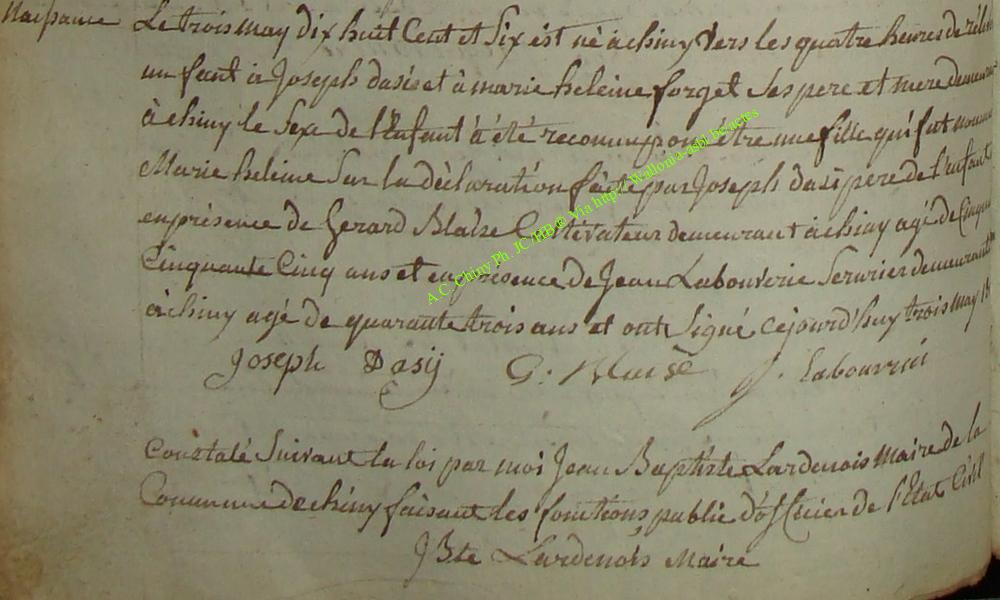 Naissance
Le trois may dix huit Cent et Six est né à chiny vers les quatre heures de
un fant à Joseph dasi et à marie heleine forget Ses pere et mere
à chiny le Sexe de l'Enfant à été reconnu pour être une fille qui fut nommé
Marie heleine Sur la déclaration faite par Joseph dasi pere de l'enfant
en présence de Gerard Blaise Cultivateur demeurant à chiny agé de Cinqua
Cinquante Cinq ans et en présence de Jean Labouverie Serurier demeurant
à chiny agé de quarante trois ans et ont Signé cejourd'huy trois may 18
Joseph Dasij G. J. labouverie
Constaté Suivant la loi par moi Jean Baptiste Lardenois Maire de la
Commune de chiny faisant les fonctions public d'officier de l'Etat Civill
J Bte Lardenois Maire
A.C. Chiny Ph. JC HB © Via http://Wallonia-asbl.be/actes